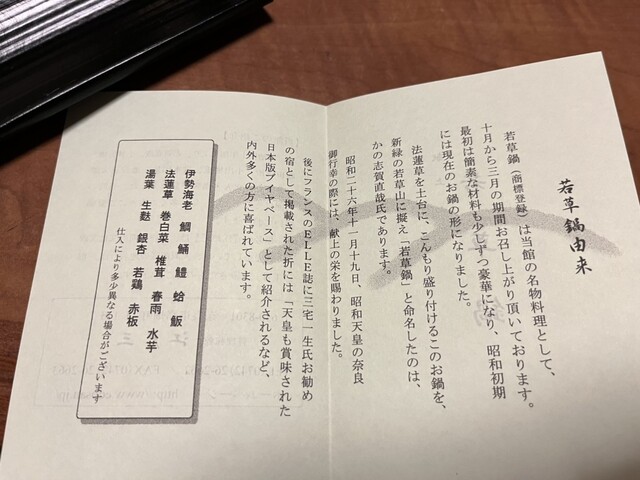 若草鍋由来
若草鍋（商標登録）は当館の名物料理として、
十月から三月の期間お召し上がり頂いております。
最初は簡素な材料も少しずつ豪華になり、昭和初期
には現在のお鍋の形になりました。
法蓮草を土台に、こんもり盛り付けるこのお鍋を、
新緑の若草山に擬え「若草鍋」と命名したのは、
かの志賀直哉氏であります。
昭和二十六年十一月十九日、昭和天皇の奈良
御行幸の際には、献上の栄を賜わりました。
後にフランスのＥＬＬＥ誌に三宅一生氏お勧め
の宿として掲載された折には「天皇も賞味された
日本版ブイヤベース」として紹介されるなど、
内外多くの方に喜ばれています。
伊勢海老　鯛　鱧　蛤
法蓮草　巻白菜　椎茸　春雨　水芋
湯葉　生麩　銀杏　若鶏　赤板
仕入により多少異なる場合がございます